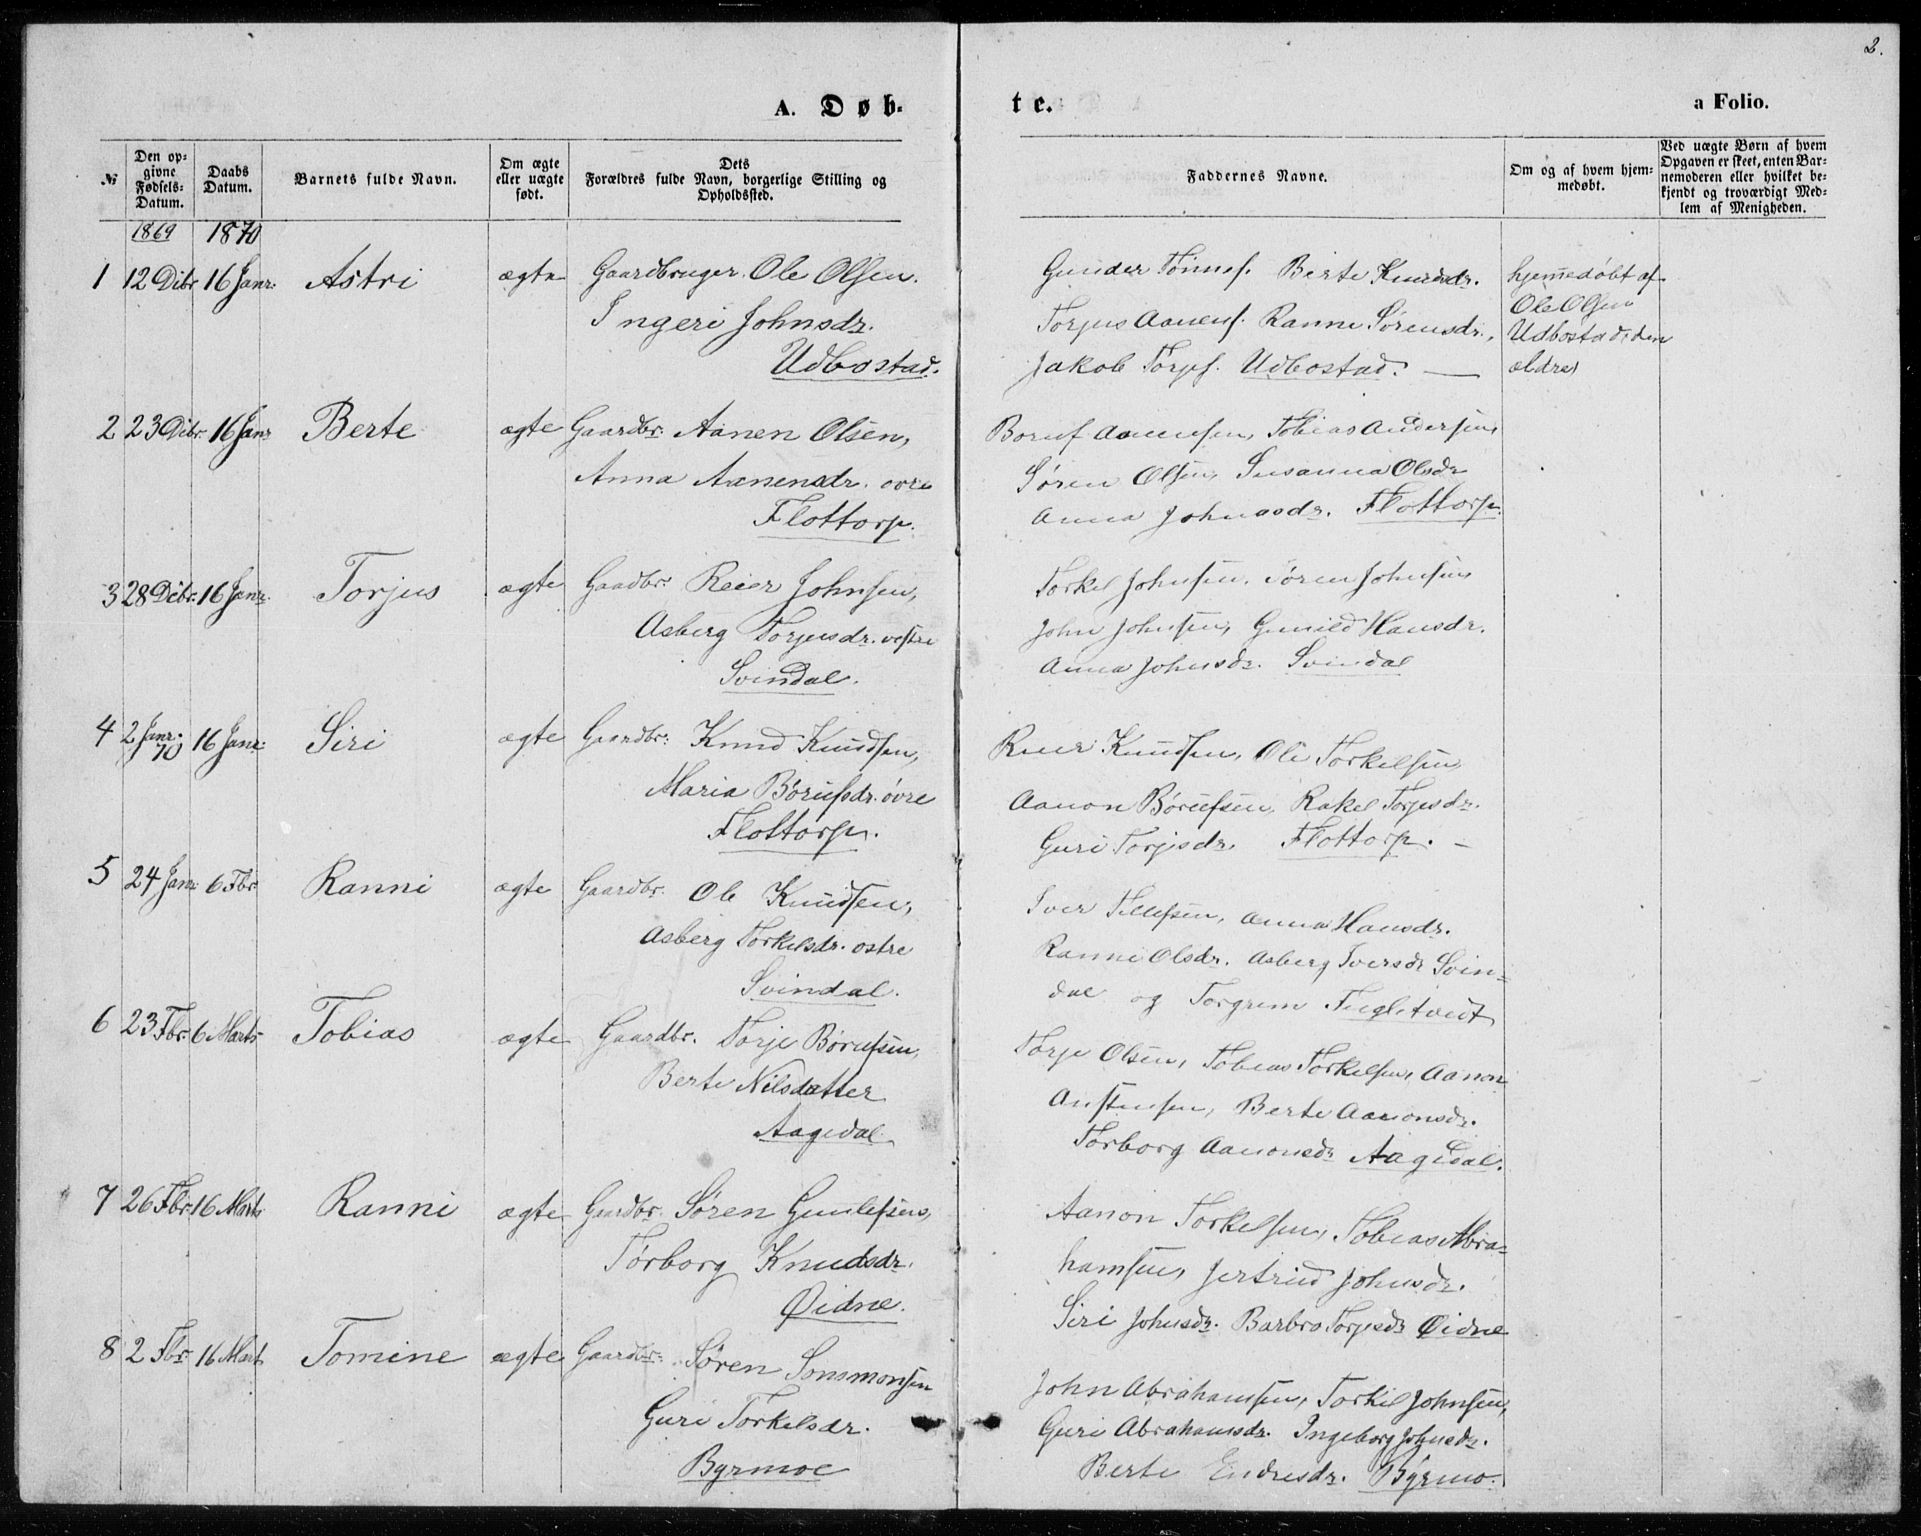 2.
A. Døb-
te.
a Folio.
№
Den op-
givne
Fødsels-
Datum.
Daabs
Datum.
Barnets fulde Navn.
Om ægte
eller uægte
født.
Dets
Forældres fulde Navn, borgerlige Stilling og
Opholdssted.
Faddernes Navne.
Om og af hvem hjem-
medøbt.
Ved uægte Børn af hvem
Opgaven er skeet, enten Bar-
nemoderen eller hvilket be-
kjendt og troværdigt Med-
lem af Menigheden.
1869 1870
1 12 Dibr 16 Janr. Astri ægte Gaardbruger Ole Olsen.
Ingeri Johnsdr.
Udbostad.
Gunder Tønnes. Berte Knudsdr.
Torjus Aanens. Ranni Sørensdr.,
Jakob Torjs. Udbostad. —
hjemedøbt af
Ole Olsen
Udbostad, den
ældre
2 23 Dibr. 16 Janr Berte ægte Gaardbr. Aanen Olsen,
Anna Aanensdr. øvre
Flottorp.
Boruf Aanensen, Tobias Andersen,
Søren Olsen, Susanna Olsdr
Anna Johnsdr. Flottorp.
3 28 Dibr. 16 Janr. Torjus ægte Gaadbr. Reier Johnsen,
Asberg Torjusdr. vestre
Svindal.
Torkel Johnsen, Søren Johnsen
John Johnsen, Gunild Hansdr.
Anna Johnsdr. Svindal
4 2 Janr. 70 16 Janr. Siri ægte Gaardbr. Knud Knudsen,
Maria Børufsdr. øvre
Flottorp.
Reier Knudsen, Ole Torkelsen,
Aanon Børufsen, Rakel Torjusdr.
Guri Torjisdr. Flottorp. —
5 24 Janr 6 Fbr. Ranni ægte Gaardbr. Ole Knudsen,
Asberg Torkelsdr. østre
Svindal.
Iver Tellefsen, Anna Hansdr.
Ranni Olsdr. Asberg Iversdr Svin-
dal og Torgrim Fuglstvedt
6 23 Fbr. 6 Marts Tobias ægte Gaardbr. Torje Børufsen,
Berte Nilsdatter
Aagedal.
Torje Olsen, Tobias Torkelsen, Aanon
Austensen, Berte Aanonsdr.
Torborg Aanonsdr Aagedal.
7 26 Fbr. 16 Marts Ranni ægte Gaardbr. Søren Gunlefsen,
Torborg Knudsdr.
Øidne.
Aanon Torkelsen, Tobias Abra-
hamsen, Jertrud Johnsdr.
Siri Johnsdr. Barbro Torjesdr Øidne
8 2 Fbr. 16 Mart Tomine ægte Gaardbr. Søren Sonsmonsen
Guri Torkelsdr.
Byrmoe
John Abrahamsen, Torkil Johnsen,
Guri Abrahamsdr. Ingeborg Johnsdr.
Berte Endresdr. Byrmo.